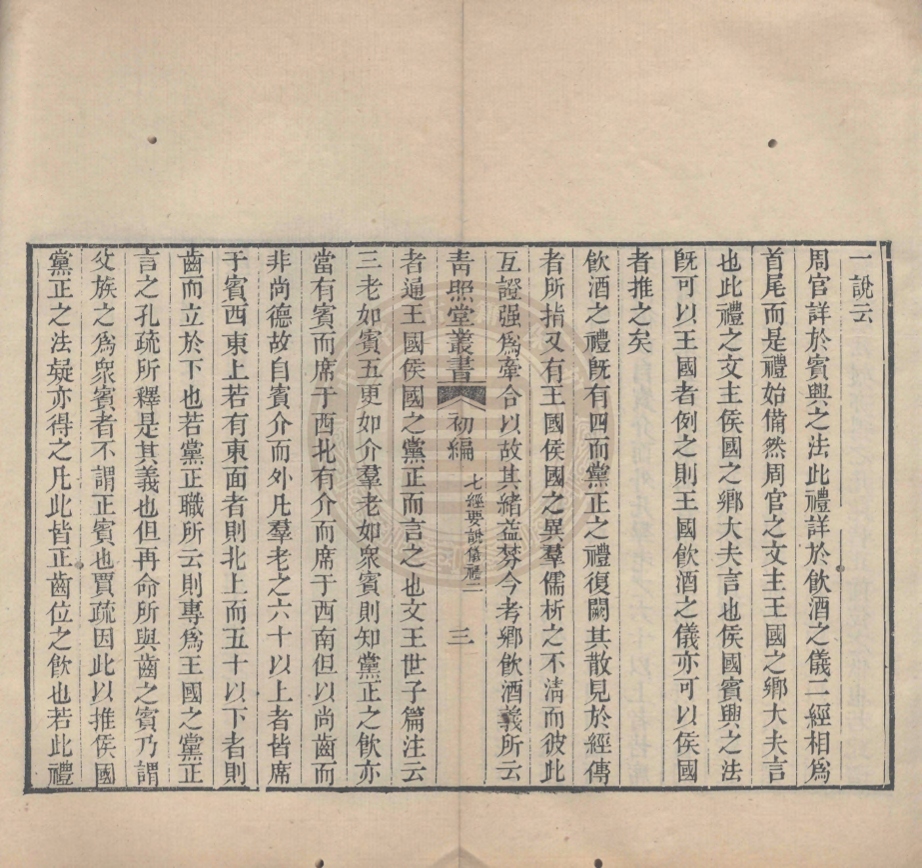 一說云
周官詳於賓興之法此禮詳於飮酒之儀二經相爲
首尾而是禮始備然周官之文主王國之鄉大夫言
也此禮之文主侯國之鄉大夫言也侯國賓興之法
旣可以王國者例之則王國飮酒之儀亦可以侯國
者推之矣
飮酒之禮旣有四而黨正之禮復闕其散見於經傳
者所指又有王國侯國之異羣儒析之不淸而彼此
互證强爲牽合以故其緒益棼今考鄉飮酒義所云
靑照堂叢書 初編 七經要說儀禮二 三
者通王國侯國之黨正而言之也文王世子篇注云
三老如賓五更如介羣老如衆賓則知黨正之飮亦
當有賓而席于西北有介而席于西南但以尚齒而
非尚德故自賓介而外凡羣老之六十以上者皆席
于賓西東上若有東面者則北上而五十以下者則
齒而立於下也若黨正職所云則專爲王國之黨正
言之孔疏所釋是其義也但再命所與齒之賓乃謂
父族之爲衆賓者不謂正賓也賈疏因此以推侯國
黨正之法疑亦得之凡此皆正齒位之飮也若此禮